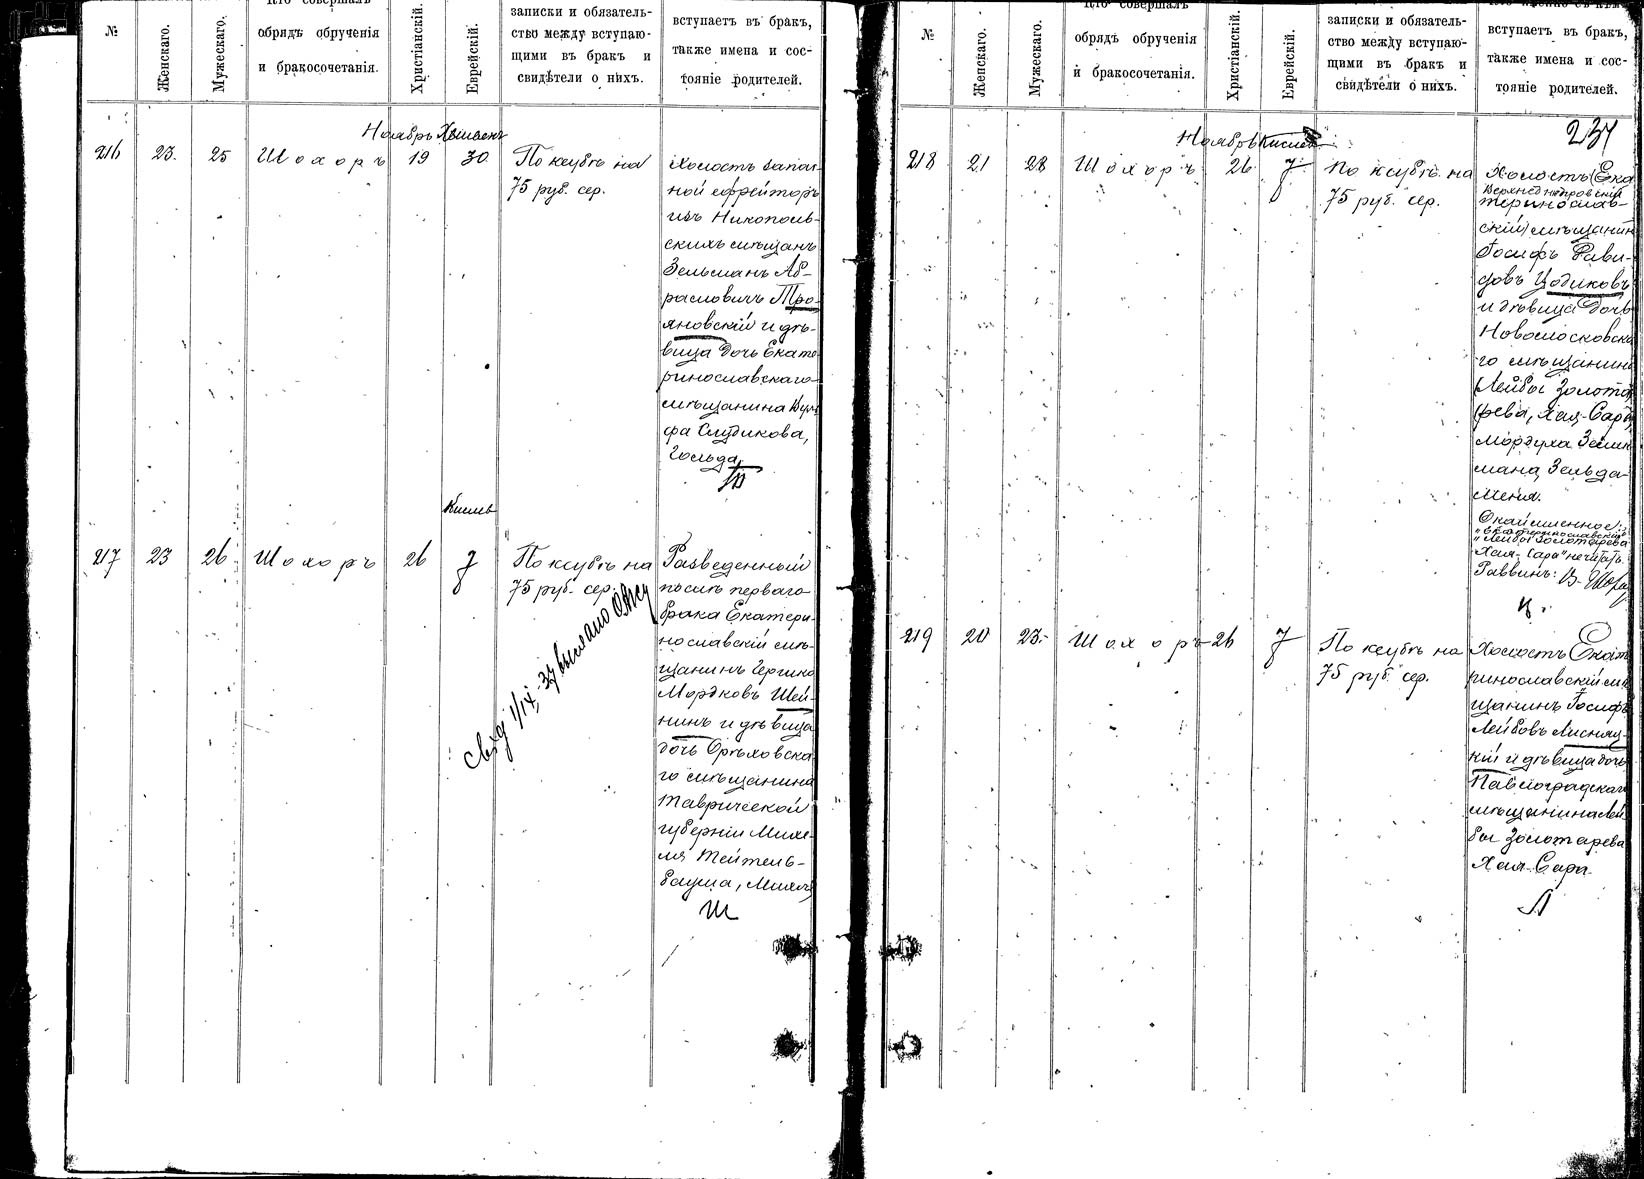 №
Женскаго.
Мужескаго.
Кто совершалъ
обрядъ обрученія
и бракосочетанія.
Христіанскій.
Еврейскій.
записки и обязатель-
ство между вступаю-
щими въ бракъ и
свидѣтели о нихъ.
вступаетъ въ бракъ,
также имена и сос-
тояніе родителей.
Ноябрь
216 23. 25 Шохоръ 19 30
По ксубѣ на
75 руб. сер.
Холостъ запас-
ной ефрейторъ
изъ Никополь-
скихъ мѣщанъ
Зельманъ Аб-
рамовичъ Тро-
яновскій и дѣ-
вица дочь Екате-
ринославскаго
мѣщанина Вуль-
фа Слудикова,
Гольда
Т
Кислев
217 23 26 Шохоръ 26 7
По ксубѣ на
75 руб. сер.
Разведенный
послѣ перваго
брака Екатери-
нославскій мѣ-
щанинъ
Мордковъ Шей-
нинъ и дѣвица
дочь Орѣховска-
го мѣщанина
Таврической
губерніи Михе-
ля Тейтель-
баума,
Ш
№
Женскаго.
Мужескаго.
Кто совершалъ
обрядъ обрученія
и бракосочетанія.
Христіанскій.
Еврейскій.
записки и обязатель-
ство между вступаю-
щими въ бракъ и
свидѣтели о нихъ.
вступаетъ въ бракъ,
также имена и сос-
тояніе родителей.
237
Ноябрь Кислев
218 21 28 Шохоръ 26 7
По ксубѣ на
75 руб. сер.
Холостъ (Ека
Верхнеднѣпровскій
теринослав-
скій) мѣщанинъ
Іосифъ Дави-
довъ Цодиковъ
и дѣвица дочь
Новомосковска
го мѣщанина
(Лейбы Золота
рева, Хая-Сара)
Мордуха Зельк
мана, Зельда-
Меня.
Окаймленное:
"Екатеринославскій"
"Лейбы Золотарева
Хая-Сара" не читать.
Раввинъ: В. Шохоръ
Ц.
219 20 23. Шохоръ 26 7
По ксубѣ на
75 руб. сер.
Холостъ Екате
ринославскій мѣ
щанинъ Іосифъ
Лейбовъ Лисняц-
кій и дѣвица дочь
Павлоградскаго
мѣщанина Лей
бы Золотарева
Хая-Сара
Л